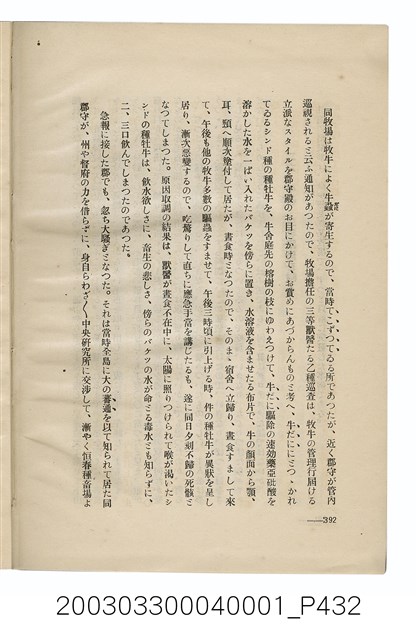 同牧場は牧牛によく牛蝨が寄生するので、當時てこずつてゐる所であつたが、近く郡守が管內
巡視されるミ云ふ通知があつたので、牧場擔任の三等獸醫たる乙種巡查は、牧牛の管理行屆ける
立派なスタイルを郡守殿のお目にかけて、お賞めにあづからんものミ考へ、牛だにミとつゝかれ
てゐるシンド種の種牡牛を、牛舍庭先の榕樹の枝にゆわえつけて、牛だに驅除の速効藥亞砒酸を
溶かした水を一ぱい入れたバケツを傍らに置き、水溶液を含ませたる布片で、牛の顏面から顎、
耳、頸へ順次塗付して居たが、晝食時となつたので、そのまゝ宿舍へ立歸り、晝食すまして來
て、午後も他の牧牛多數の驅蟲をすませて、午後三時頃に引上げる時、件の種牡牛が異狀を呈し
居り、漸次惡變するので、吃驚りして直ちに應急手當を講じたるも、遂に同日夕刻不歸の死骸ミ
なつてしまつた。原因取調の結果は、獸醫が晝食不在中に、太陽に照りつけられて喉が渴いたシ
ンドの種牡牛は、飮水欲しさに、畜生の悲しさ、傍らのバケツの水が命ミる毒水とも知らずに、
二、三口飮んでしまつたのであつた。
急報に接した郡でも、忽ち大騷ぎとなつた。それは當時全島に大の蕃通を以て知られて居た同
郡守が、州や督府の力を借らずに、身自らわざ〱中央硏究所に交涉して、漸やく恒春種畜場よ
392
200303300040001_P432